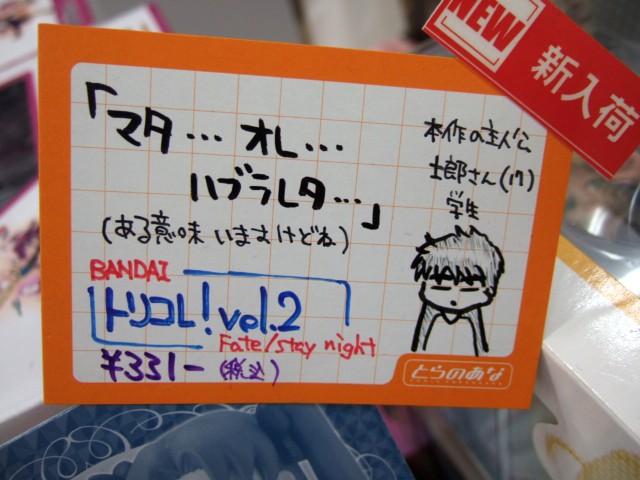 NEW
新入荷
「マタ…オレ…
ハブラレタ…」
(ある意味いますけどね)
本作の主人公
士郎さん(17)
学生
BANDAI
トリコレ!vol.2
Fate/stay night
¥331-(税込)
とらのあな